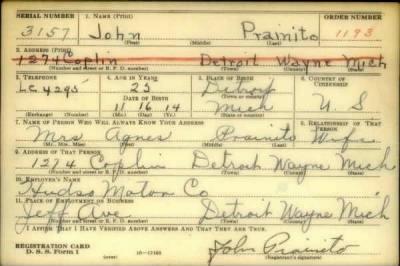 SERIAL NUMBER 1. NAME (Print) ORDER NUMBER
3157 John Prainito 1193
(First) (Middle) (Last)
2. ADDRESS (Print)
1274 Coplin Detroit Wayne Mich
(Number and street or R. F. D. number) (Town) (County) (State)
3. TELEPHONE 4. AGE IN YEARS 5. PLACE OF BIRTH 6. COUNTRY OF CITIZENSHIP
LE 4295 25 Detroit
DATE OF BIRTH (Town or county)
11 16 14 Mich U. S
(Exchange) (Number) (Mo.) (Day) (Yr.) (State or country)
7. NAME OF PERSON WHO WILL ALWAYS KNOW YOUR ADDRESS 8. RELATIONSHIP OF THAT PERSON
Mrs Agnes Prainito Wife
(Mr., Mrs., Miss) (First) (Middle) (Last)
9. ADDRESS OF THAT PERSON
1274 Coplin Detroit Wayne Mich
(Number and street or R. F. D. number) (Town) (County) (State)
10. EMPLOYER'S NAME
Hudso Motor Co
11. PLACE OF EMPLOYMENT OR BUSINESS
Jeff Ave Detroit Wayne Mich
(Number and street or R. F. D. number) (Town) (County) (State)
I AFFIRM THAT I HAVE VERIFIED ABOVE ANSWERS AND THAT THEY ARE TRUE.
REGISTRATION CARD John Prainito
D. S. S. Form 1 16—17105 (Registrant's signature)